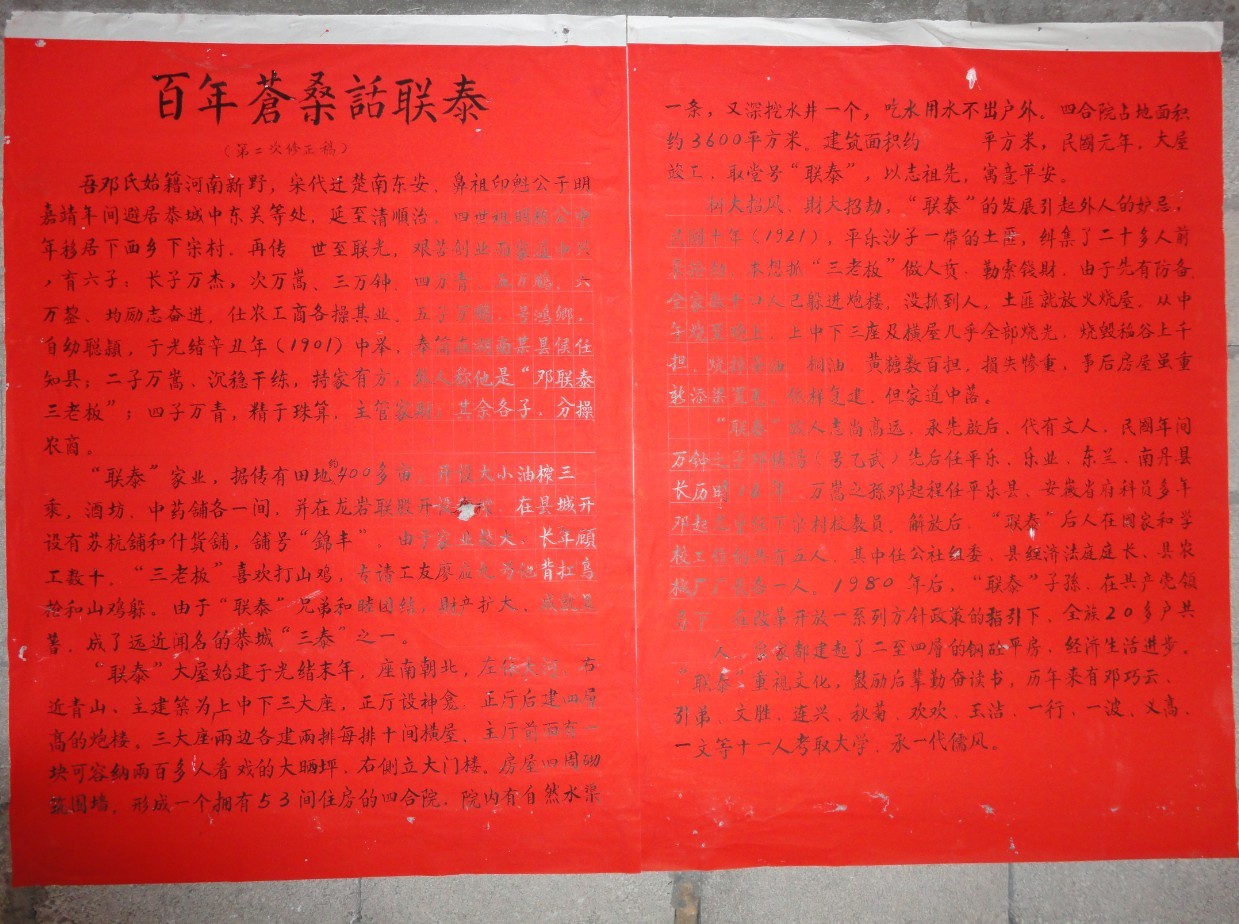 百年蒼桑話联泰
(第二次修正稿)
吾邓氏始籍河南新野，宋代迁楚南东安，鼻祖印魁公于明
嘉靖年间避居恭城中东关等处，延至清順治，四世祖明
年移居下面乡下宋村．再传 世至联光，艰苦创业
，育六子：长子万杰，次万嵩、三万钟．四万青、五万鹏，六
万鍪、均励志奋进，仕农工商各操其业．五子万鹏、号鴻鄉，
自幼聪颖，于光绪辛丑年（1901）中举．湖南某县候任
知县；二子万嵩、沉稳干练，持家有方，外人称他是“邓联泰
三老板”；四子万青，精于珠算．主管家财；其余各子．分操
农商。
“联泰”家业，据传有田地约400多亩．开设大小油榨三
乘，酒坊．中药舖各一间，并在龙岩联股开设 在县城开
设有苏杭舖和什貨舖，舖号“錦丰”．由于家业 大、长年顾
工数十．“三老板”喜欢打山鸡，专请工友廖 背扛鸟
枪和山鸡躲。由于“联泰”兄弟和睦团结，财产扩大，
著，成了远近闻名的恭城“三泰”之一。
“联泰”大屋始建于光绪末年，座南朝北，左 右
近青山、主建築为上中下三大座，正厅设神龛。正厅后建四层
高的炮楼。三大座兩边各建兩排每排十间橫屋．主厅前面有一
块可容纳兩百多人看戏的大晒坪．右側立大门楼。房屋四周砌
筑围墙，形成一个拥有53间住房的四合院．院内有自然水渠
一条，又深挖水井一个，吃水用水不出户外。四合院占地面积
约3600平方米．建筑面积约 平方米，民國元年．大屋
竣工．取堂号“联泰”，以志祖先，寓意平安。
树大招风．財大招劫，“联泰”的发展引起外人的妒忌，
民国十年（1921），平乐沙子一带的土匪，纠集了二十多人前
来 本想抓“三老板”做人质．勒索钱財．由于先有防备．
全家 人已躲进炮楼．没抓到人，土匪就放火烧屋．从中
午烧至晚上．上中下三座及橫屋几乎全部烧光．烧毀稻谷上千
担．烧 油 桐油．黄糖数百担．损失惨重．事后房屋虽重
新添 复建．但家道中落。
“联泰” 人志尚高远．承先啟后、代有文人，民國年间
万钟之子邓 （号乙武）先后任平乐、乐业、东兰、南丹县
长历时 万嵩之孫邓起程任平乐县、安徽省府科员多年
邓起 下宋村校教员．解放后．“联泰”后人在国家和学
校工作 共有五人．其中任公社组委．县经济法庭庭长、县农
械厂厂长各一人。1980年后，“联泰”子孫．在共产党领
导下．在改革开放一系列方针政策的指引下．全族20多户共
人．家家都建起了二至四層的钢砼平房．经济生活进步．
“联泰”重祖文化，鼓励后辈勤奋读书，历年来有邓巧云．
引弟、文胜、连兴、秋菊、欢欢、玉洁、一行、一波、义高、
一文等十一人考取大学．承一代儒风。